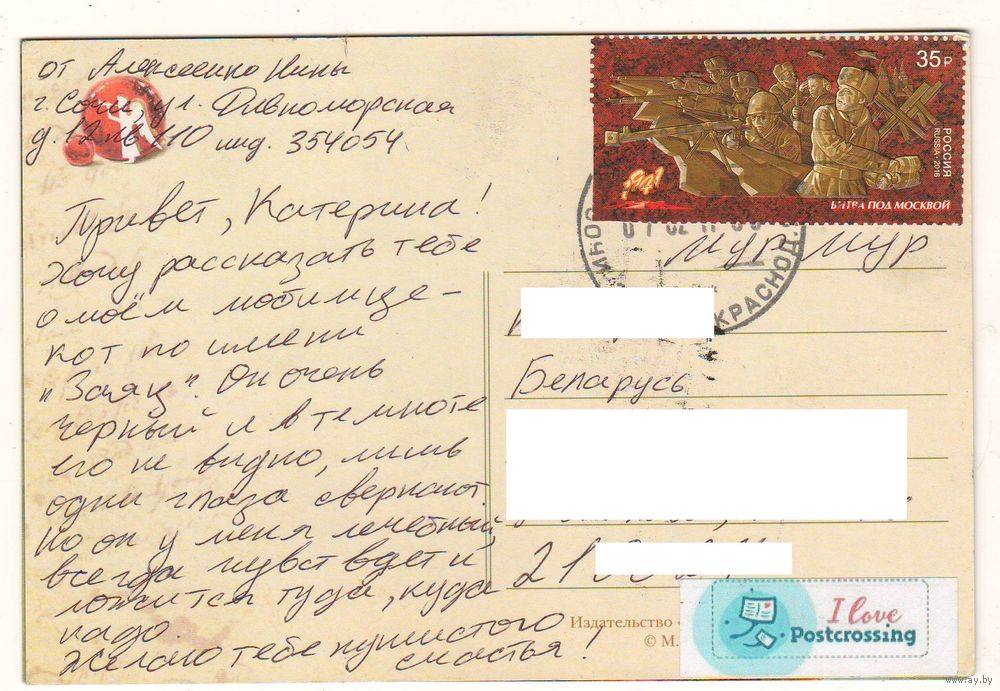 от Алексеенко Нины
г. Сочи ул. Дивноморская
д. 12 кв 110 инд. 354054
Привет, Катерина!
Хочу рассказать тебе
о моём любимце -
кот по имени
"Заяц". Он очень
черный и в темноте
его не видно, лишь
одни глаза сверкают.
Но он у меня лечебный,
всегда чувствует и
ложится туда, куда
надо.
Желаю тебе пушистого
счастья!
35 Р
РОССИЯ
RUSSIA • 2016
1941
БИТВА ПОД МОСКВОЙ
КРАСНОД
мур мур
Беларусь
210
Издательство
© М.
I love
Postcrossing
www.ay.by